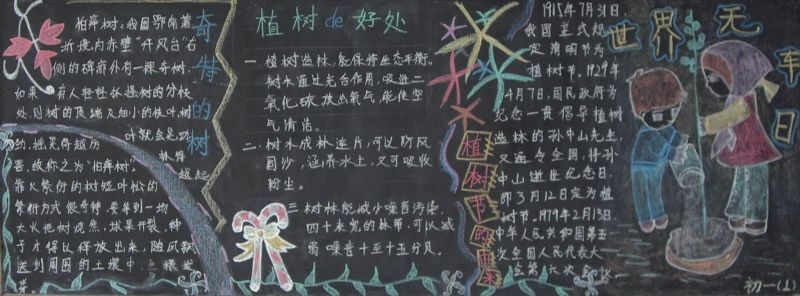 奇特的树
怕痒树：我国鄂南蒲
圻境内赤壁"拜风台"右
侧的碑廊外有一棵奇树，
如果有人轻轻抚摸树的分枝
处，则树的顶端及细小的枝叶
叶就会晃动
越起
害，故称之为"怕痒树"。
靠火繁衍的树短叶松的
繁衍方式很奇特，要等到一场
大火把树烧焦，球果开裂，种
子才得以释放出来，随风飘
送到周围的土壤中，生根发
芽。
植树de好处
一、植树造林，能保持生态平衡。
树木通过光合作用，吸进二
氧化碳，放出氧气，能使空
气清洁。
二、树木成林连片，可以防风
固沙，涵养水土，又可吸收
粉尘。
三、树林能减小噪音污染，
四十米宽的林带，可以减
弱噪音十至十五分贝。
植树节的由来
1915年7月31日
我国正式规
定清明节为
植树节。1929年
4月7日，国民政府为
纪念一贯倡导植树
造林的孙中山先生
又通令全国，将孙
中山逝世纪念日，
即3月12日定为植
树节。1979年2月13日，
中华人民共和国第五
次全国人民代表大
会第六次会议
世界无车日
初一(1)